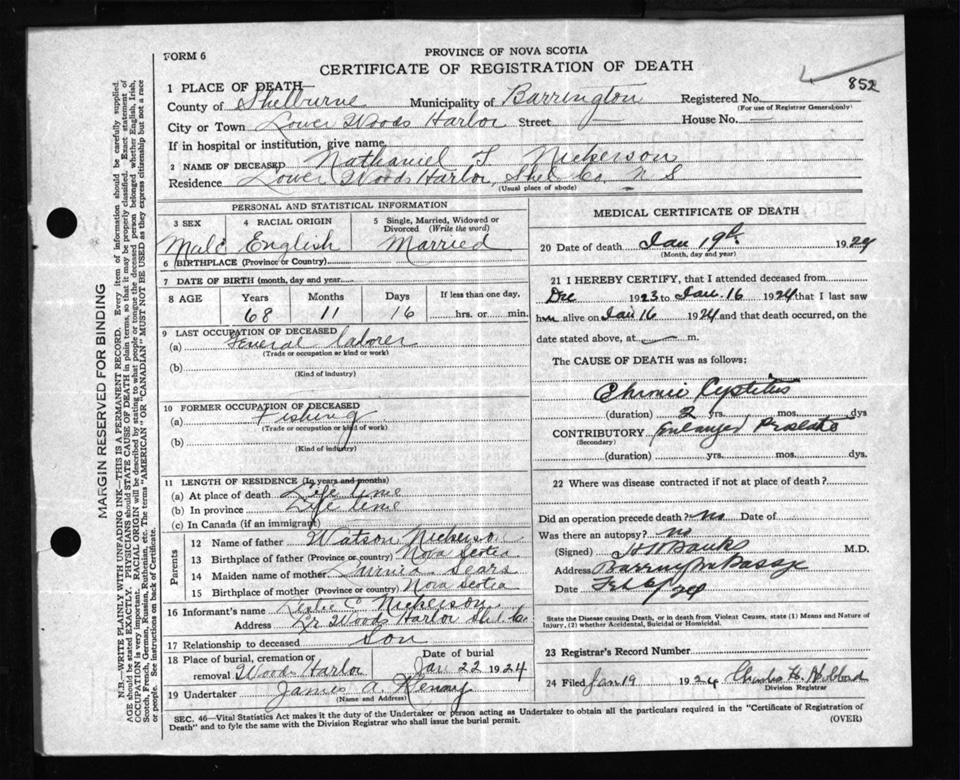 FORM 6
PROVINCE OF NOVA SCOTIA
CERTIFICATE OF REGISTRATION OF DEATH
852
1 PLACE OF DEATH—
County of Shelburne Municipality of Barrington Registered No.
(For use of Registrar General only)
City or Town Lower Woods Harbor Street — House No. —
If in hospital or institution, give name
2 NAME OF DECEASED Nathaniel T Nickerson
Residence Lower Woods Harbor, Shel Co. N S
(Usual place of abode)
PERSONAL AND STATISTICAL INFORMATION
3 SEX 4 RACIAL ORIGIN 5 Single, Married, Widowed or Divorced (Write the word)
Male English Married
6 BIRTHPLACE (Province or Country)
7 DATE OF BIRTH (month, day and year)
8 AGE Years Months Days If less than one day,
68 11 16 hrs. or min.
9 LAST OCCUPATION OF DECEASED
(a) General laborer
(Trade or occupation or kind or work)
(b)
(Kind of industry)
10 FORMER OCCUPATION OF DECEASED
(a) Fishing
(Trade or occupation or kind or work)
(b)
(Kind of industry)
11 LENGTH OF RESIDENCE (In years and months)
(a) At place of death Life time
(b) In province Life time
(c) In Canada (if an immigrant)
Parents
12 Name of father Watson Nickerson
13 Birthplace of father (Province or country) Nova Scotia
14 Maiden name of mother Sears
15 Birthplace of mother (Province or country) Nova Scotia
16 Informant's name Leslie C Nickerson
Address Lr Woods Harbor Shel Co.
17 Relationship to deceased Son
18 Place of burial, cremation or removal Woods Harbor Date of burial Jan 22 1924
19 Undertaker James A. Kenney
(Name and Address)
MEDICAL CERTIFICATE OF DEATH
20 Date of death Jan 19th 1924
(Month, day and year)
21 I HEREBY CERTIFY, that I attended deceased from
Dec 1923 to Jan. 16 1924 that I last saw
him alive on Jan 16 1924 and that death occurred, on the
date stated above, at — m.
The CAUSE OF DEATH was as follows:
Chronic Cystitis
(duration) 2 yrs. mos. dys
CONTRIBUTORY Enlarged Prostate
(Secondary)
(duration) yrs. mos. dys.
22 Where was disease contracted if not at place of death?
Did an operation precede death? no Date of
Was there an autopsy? no
(Signed) Banks M.D.
Address Barrington Passage
Date Feb
State the Disease causing Death, or in death from Violent Causes, state (1) Means and Nature of Injury, (2) whether Accidental, Suicidal or Homicidal.
23 Registrar's Record Number
24 Filed Jan 19 1924 Charles H. Hubbard
Division Registrar
SEC. 46—Vital Statistics Act makes it the duty of the Undertaker or person acting as Undertaker to obtain all the particulars required in the "Certificate of Registration of
Death" and to fyle the same with the Division Registrar who shall issue the burial permit.
(OVER)
MARGIN RESERVED FOR BINDING
N.B.—WRITE PLAINLY WITH UNFADING INK—THIS IS A PERMANENT RECORD. Every item of information should be carefully supplied.
AGE should be stated EXACTLY. PHYSICIANS should STATE CAUSE OF DEATH in plain terms, so that it may be properly classified. Exact statement of
OCCUPATION is very important. RACIAL ORIGIN will be described by stating to what people or tongue the deceased person belonged whether English, Irish,
Scotch, French, German, Russian, Ruthenian, etc. The terms "AMERICAN" OR "CANADIAN" MUST NOT BE USED as they express citizenship but not a race
or people. See instructions on back of Certificate.